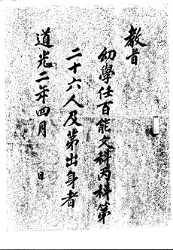 教旨
幼學任百能文科丙科第
二十六人及第出身者
道光二年四月 日